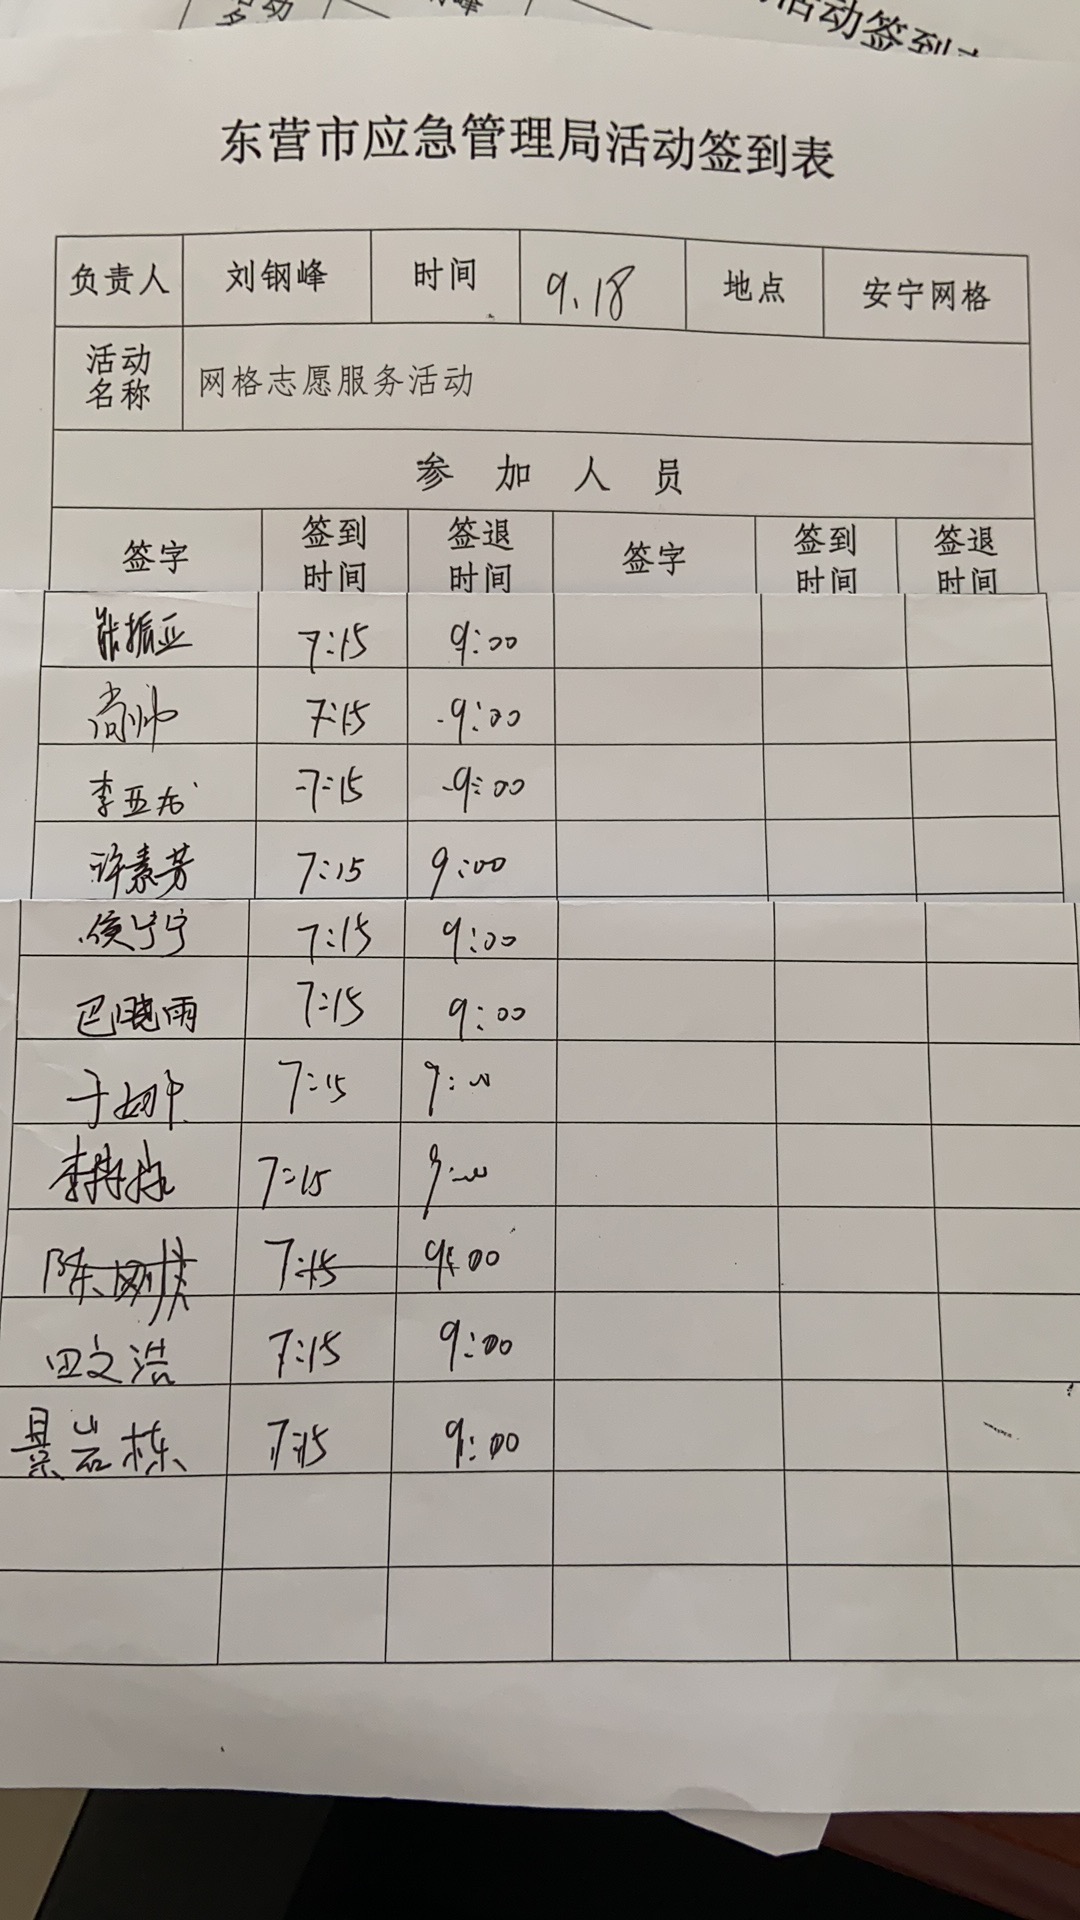 活动签到
东营市应急管理局活动签到表
负责人 刘钢峰 时间 9.18 地点 安宁网格
活动名称 网格志愿服务活动
参加人员
签字 签到时间 签退时间 签字 签到时间 签退时间
张振亚 7:15 9:00
尚帅 7:15 9:00
李亚龙 7:15 9:00
许素芳 7:15 9:00
侯宁宁 7:15 9:00
巴晓雨 7:15 9:00
7:15 9:00
7:15 9:00
7:15 9:00
田文浩 7:15 9:00
景岩栋 7:15 9:00